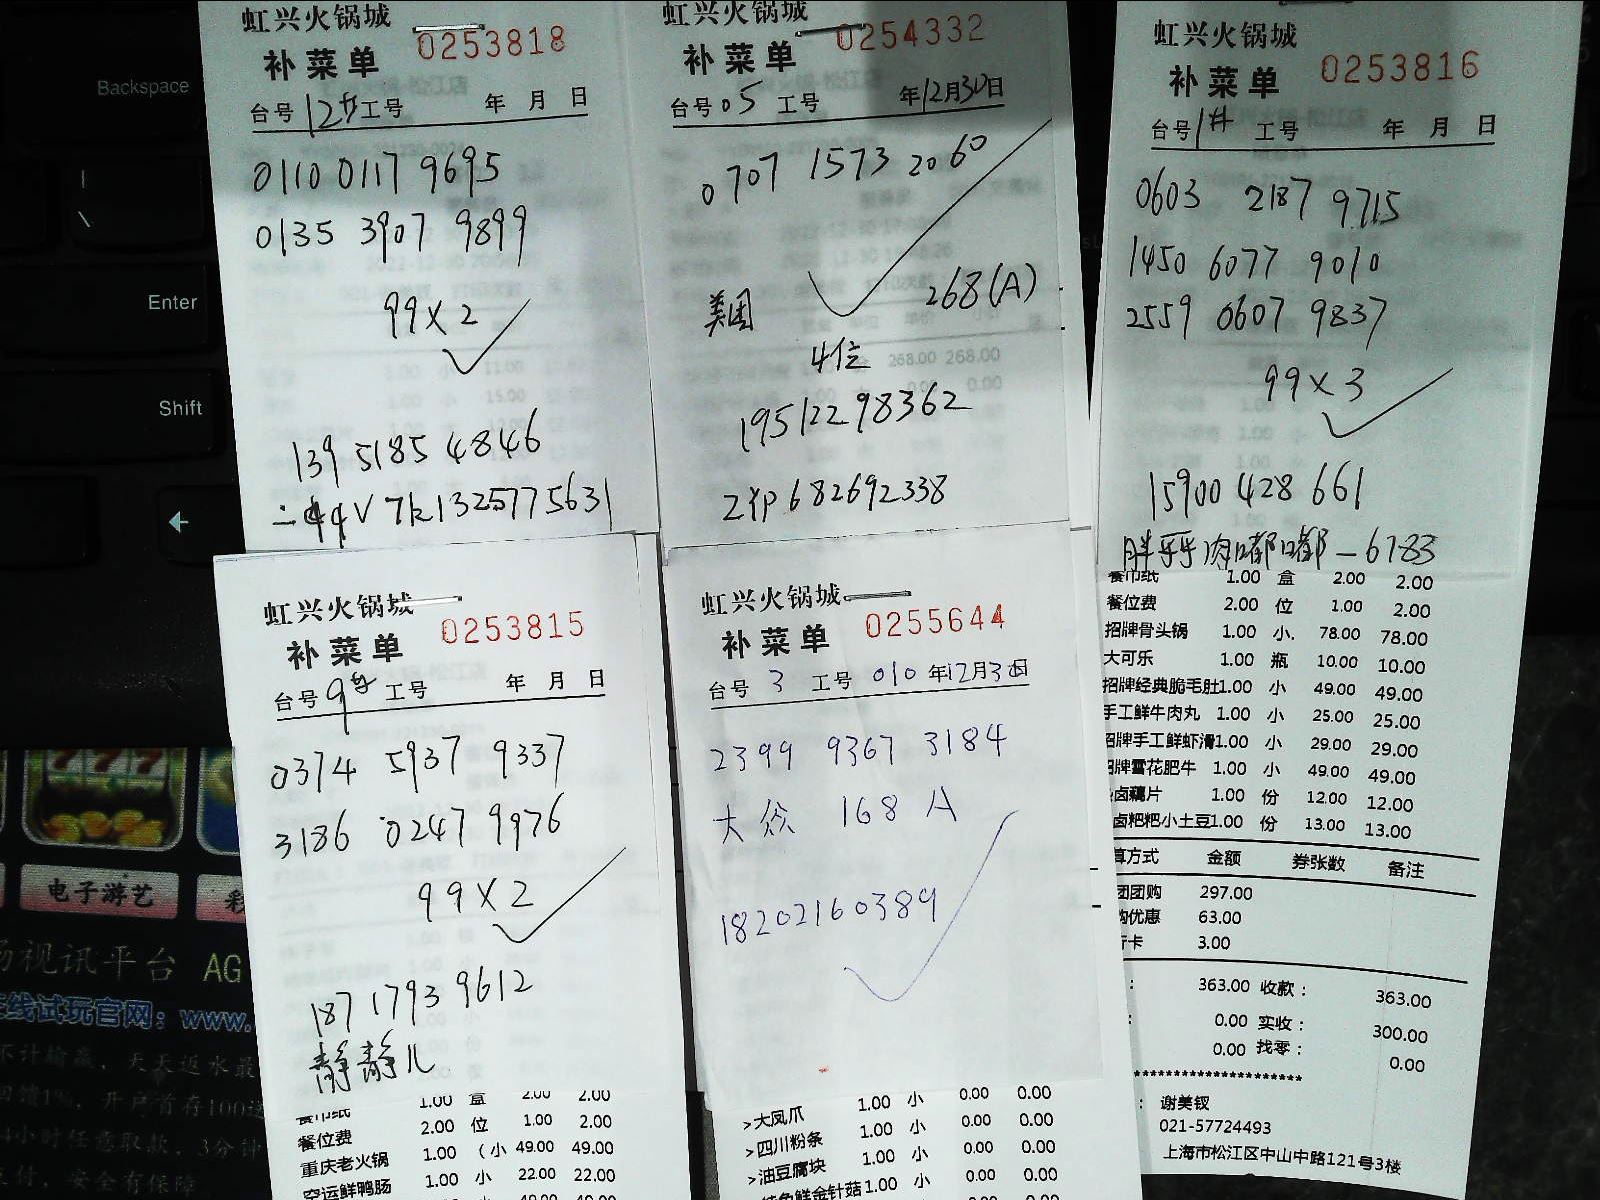 虹兴火锅城
补菜单 0253818
台号 12 工号 年 月 日
0110 0117 9695
0135 3907 9899
99×2
139 5185 4846
虹兴火锅城
补菜单 0254332
台号 05 工号 年12月30日
0707 1573 2060
美团 268(A)
4位
19512298362
268.00 268.00
虹兴火锅城
补菜单 0253816
台号 1# 工号 年 月 日
0603 2187 9715
1450 6077 9010
2559 0607 9837
99×3
15900 428 661
胖乎乎肉嘟嘟-6783
餐巾纸 1.00 盒 2.00 2.00
餐位费 2.00 位 1.00 2.00
招牌骨头锅 1.00 小. 78.00 78.00
大可乐 1.00 瓶 10.00 10.00
招牌经典脆毛肚1.00 小 49.00 49.00
手工鲜牛肉丸 1.00 小 25.00 25.00
招牌手工鲜虾滑1.00 小 29.00 29.00
招牌雪花肥牛 1.00 小 49.00 49.00
卤藕片 1.00 份 12.00 12.00
卤粑粑小土豆1.00 份 13.00 13.00
算方式 金额 券张数 备注
团团购 297.00
购优惠 63.00
行卡 3.00
: 363.00 收款: 363.00
: 0.00 实收: 300.00
0.00 找零: 0.00
********************
: 谢美钗
021-57724493
上海市松江区中山中路121号3楼
虹兴火锅城
补菜单 0253815
台号 9 工号 年 月 日
0374 5937 9337
3186 0247 9976
99×2
187 1793 9612
静静儿
餐巾纸 1.00 盒 2.00 2.00
餐位费 2.00 位 1.00 2.00
重庆老火锅 1.00 (小 49.00 49.00
空运鲜鸭肠 1.00 小 22.00 22.00
虹兴火锅城
补菜单 0255644
台号 3 工号 010 年12月30日
2399 9367 3184
大众 168 A
18202160389
>大凤爪 1.00 小 0.00 0.00
>四川粉条 1.00 小 0.00 0.00
>油豆腐块 1.00 小 0.00 0.00
鲜金针菇1.00 小 0.00 0.00
Backspace
|
\
Enter
Shift
←
777
电子游艺
彩
场视讯平台 AG
在线试玩官网: www.
不计输赢, 天天返水最
回馈1%, 开户首存100送
4小时任意取款, 3分钟
支付, 安全有保障